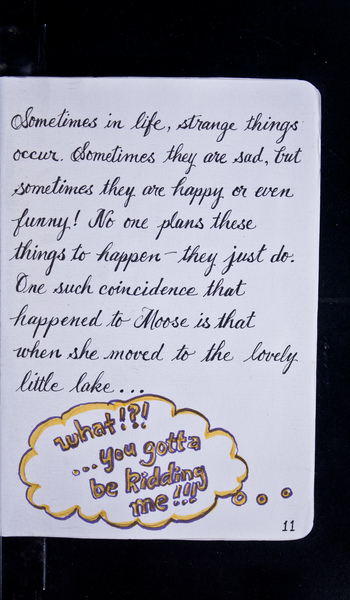 Sometimes in life, strange things
occur. Sometimes they are sad, but
sometimes they are happy or even
funny! No one plans these
things to happen — they just do.
One such coincidence that
happened to Moose is that
when she moved to the lovely
little lake...
what!?!
...you gotta
be kidding
me!!!
11